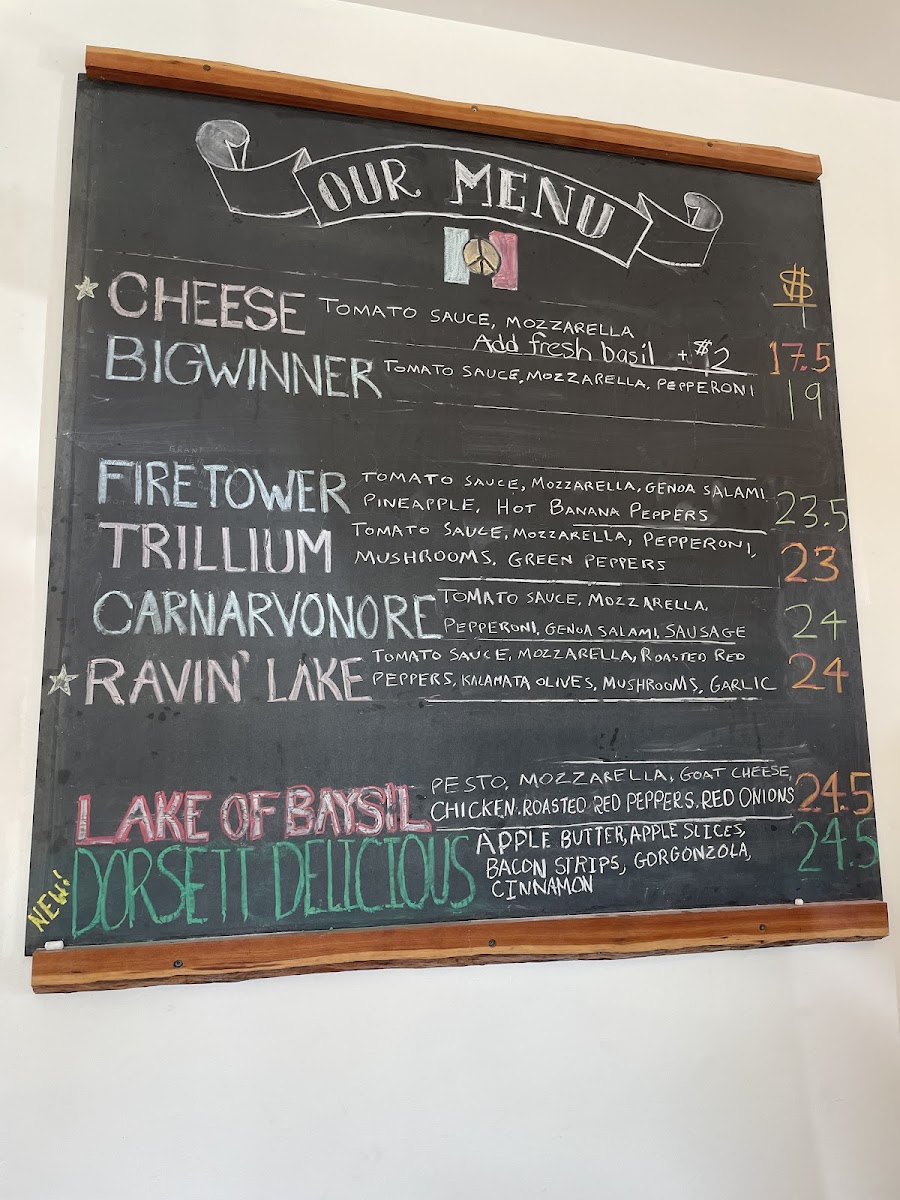 OUR MENU
$
CHEESE TOMATO SAUCE, MOZZARELLA
Add fresh basil + $2 17.5
BIGWINNER TOMATO SAUCE, MOZZARELLA, PEPPERONI 19
FIRETOWER TOMATO SAUCE, MOZZARELLA, GENOA SALAMI
PINEAPPLE, HOT BANANA PEPPERS 23.5
TRILLIUM TOMATO SAUCE, MOZZARELLA, PEPPERONI,
MUSHROOMS, GREEN PEPPERS 23
CARNARVONORE TOMATO SAUCE, MOZZARELLA,
PEPPERONI, GENOA SALAMI, SAUSAGE 24
RAVIN' LAKE TOMATO SAUCE, MOZZARELLA, ROASTED RED
PEPPERS, KALAMATA OLIVES, MUSHROOMS, GARLIC 24
LAKE OF BAYS'IL PESTO, MOZZARELLA, GOAT CHEESE,
CHICKEN, ROASTED RED PEPPERS, RED ONIONS 24.5
NEW! DORSETT DELICIOUS APPLE BUTTER, APPLE SLICES,
BACON STRIPS, GORGONZOLA,
CINNAMON 24.5